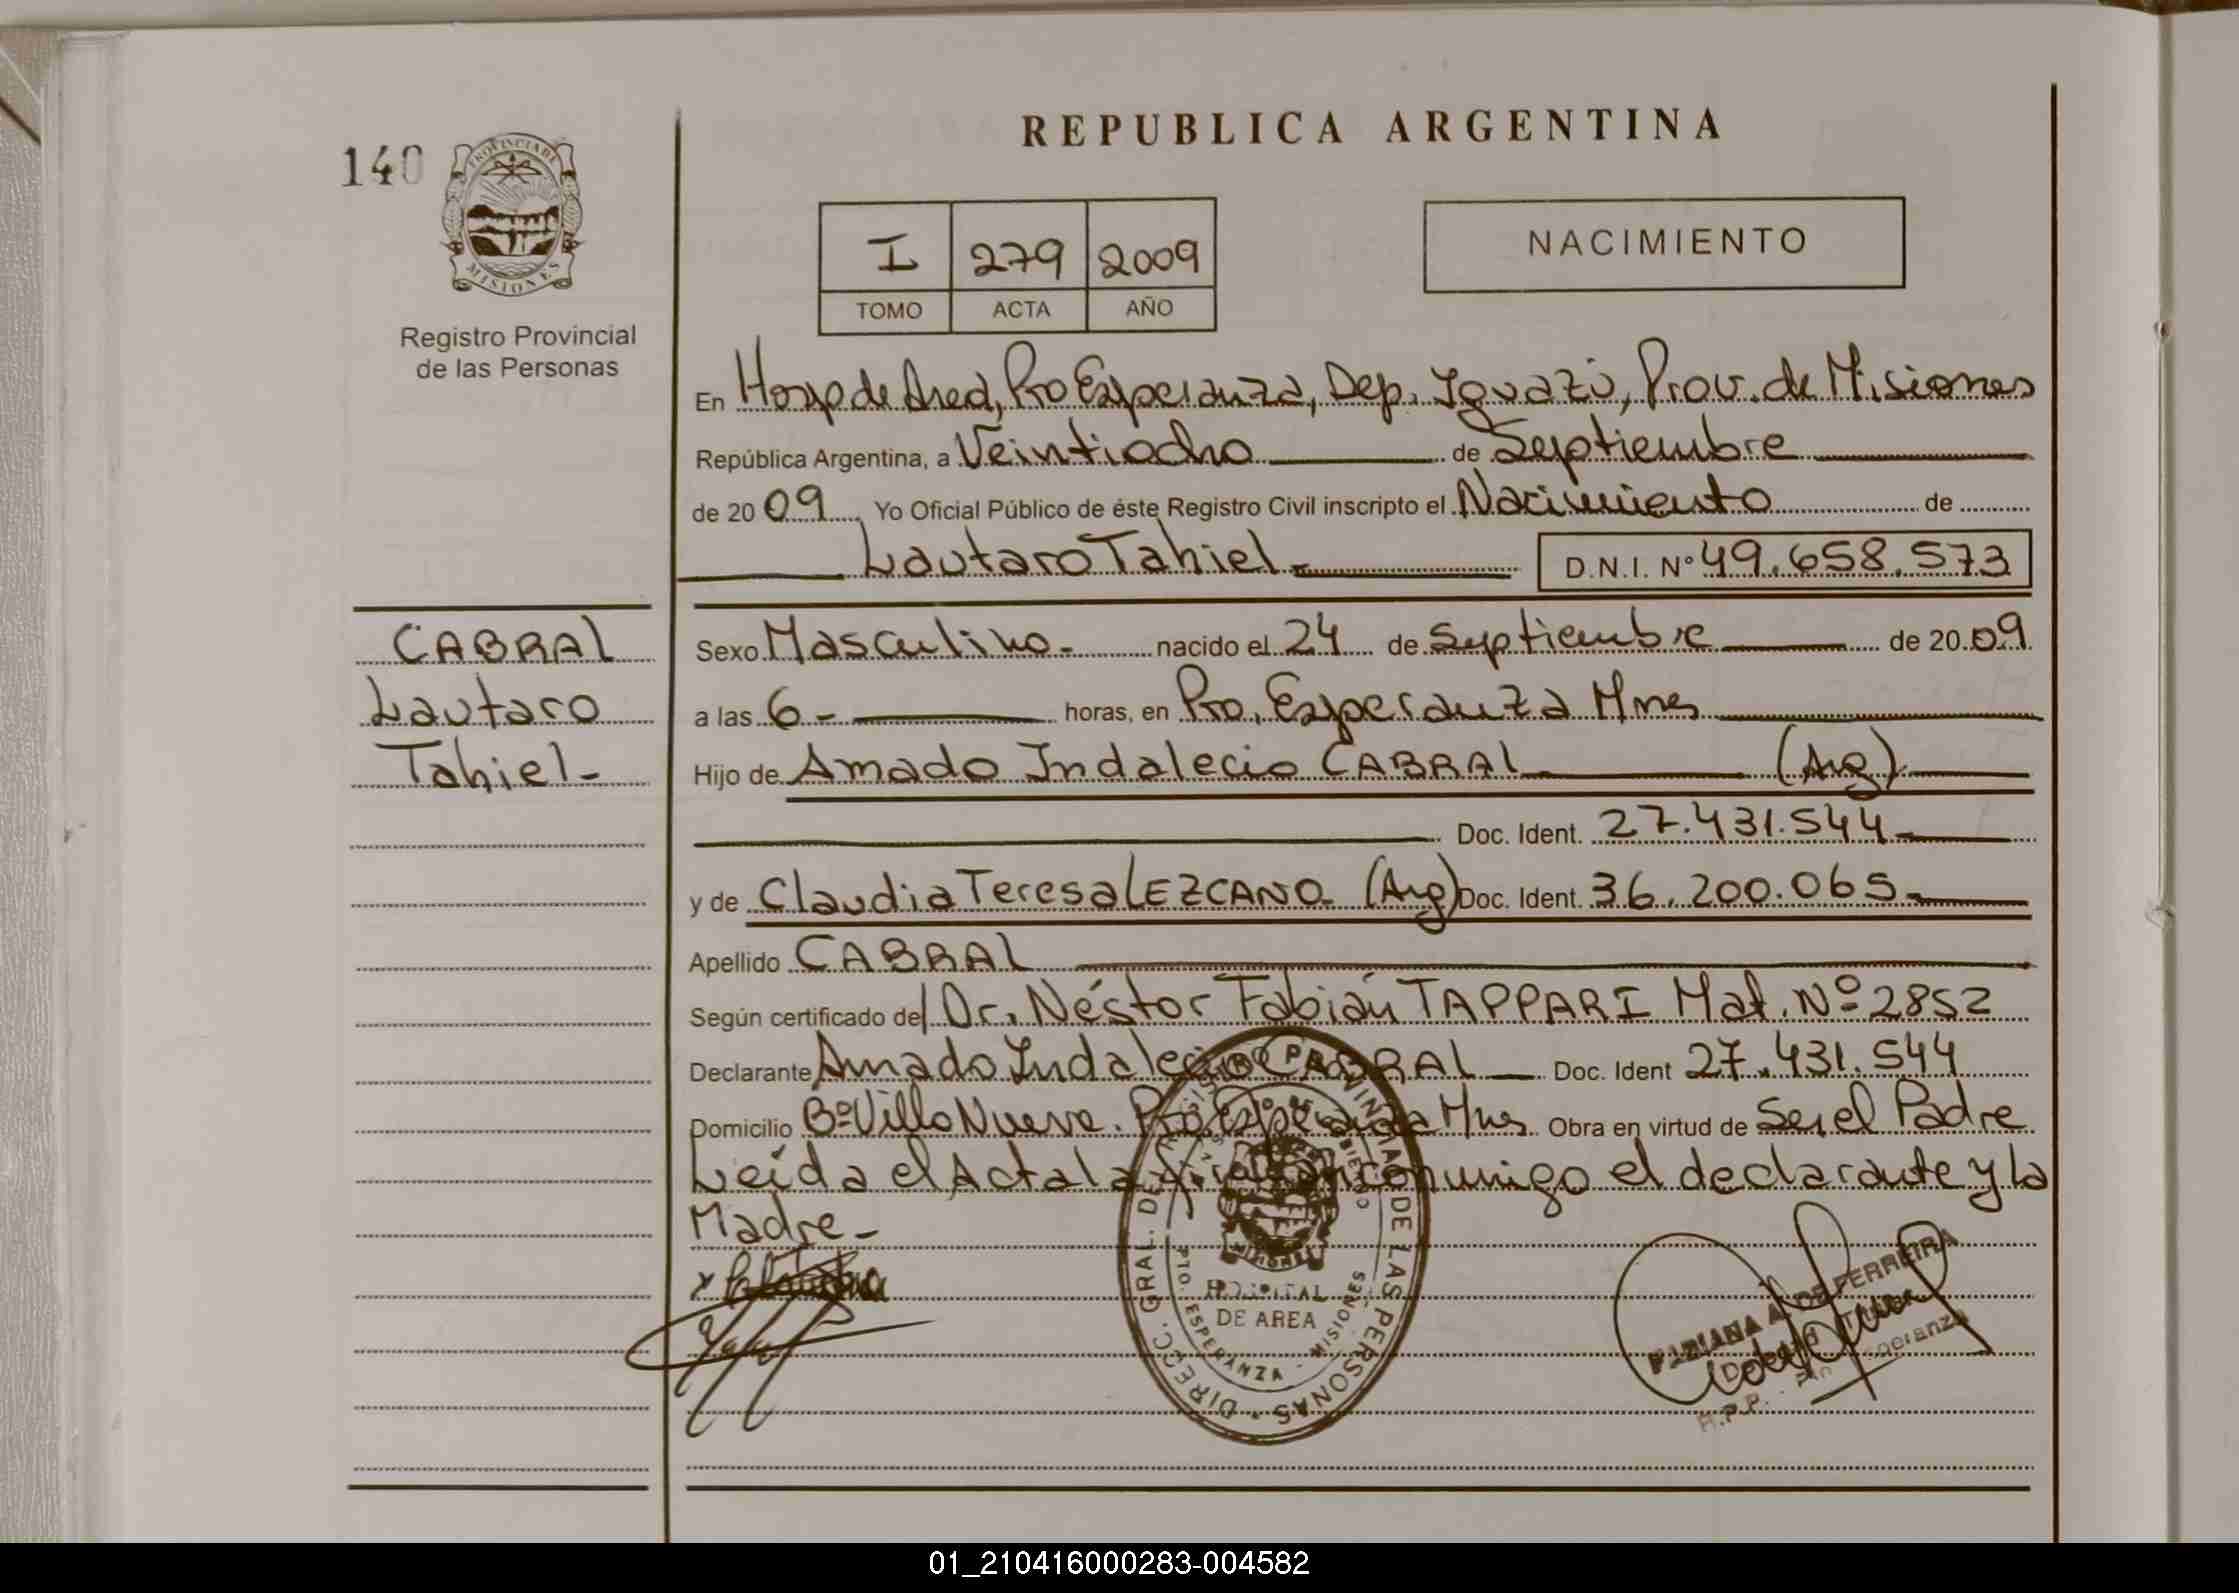 REPUBLICA ARGENTINA
140
PROVINCIA DE
MISIONES
Registro Provincial
de las Personas
I 279 2009
TOMO ACTA AÑO
NACIMIENTO
En Hosp de Area, Pto Esperanza, Dep. Iguazú, Prov. de Misiones
República Argentina, a Veintiocho de Septiembre
de 2009 Yo Oficial Público de éste Registro Civil inscripto el Nacimiento de
Lautaro Tahiel - D.N.I. Nº 49.658.573
CABRAL
Lautaro
Tahiel -
Sexo Masculino - nacido el 24 de Septiembre de 2009
a las 6 - horas, en Pto. Esperanza Mnes
Hijo de Amado Indalecio CABRAL (Arg)
Doc. Ident. 27.431.544 -
y de Claudia Teresa LEZCANO - (Arg) Doc. Ident. 36.200.065 -
Apellido CABRAL
Según certificado del Dr. Néstor Fabián TAPPARI Mat. Nº 2852
Declarante Amado Indalecio CABRAL Doc. Ident 27.431.544
Domicilio Bº Villa Nueva. Pto. Esperanza Mnes Obra en virtud de Ser el Padre
Leída el Acta la firman conmigo el declarante y la
Madre -
DIRECC. GRAL. DE REGISTRO PROVINCIAL DE LAS PERSONAS
MISIONES
HOSPITAL
DE AREA
PTO. ESPERANZA - MISIONES
FABIANA A. DE FERREIRA
R.P.P. - Pto. Esperanza
01_210416000283-004582